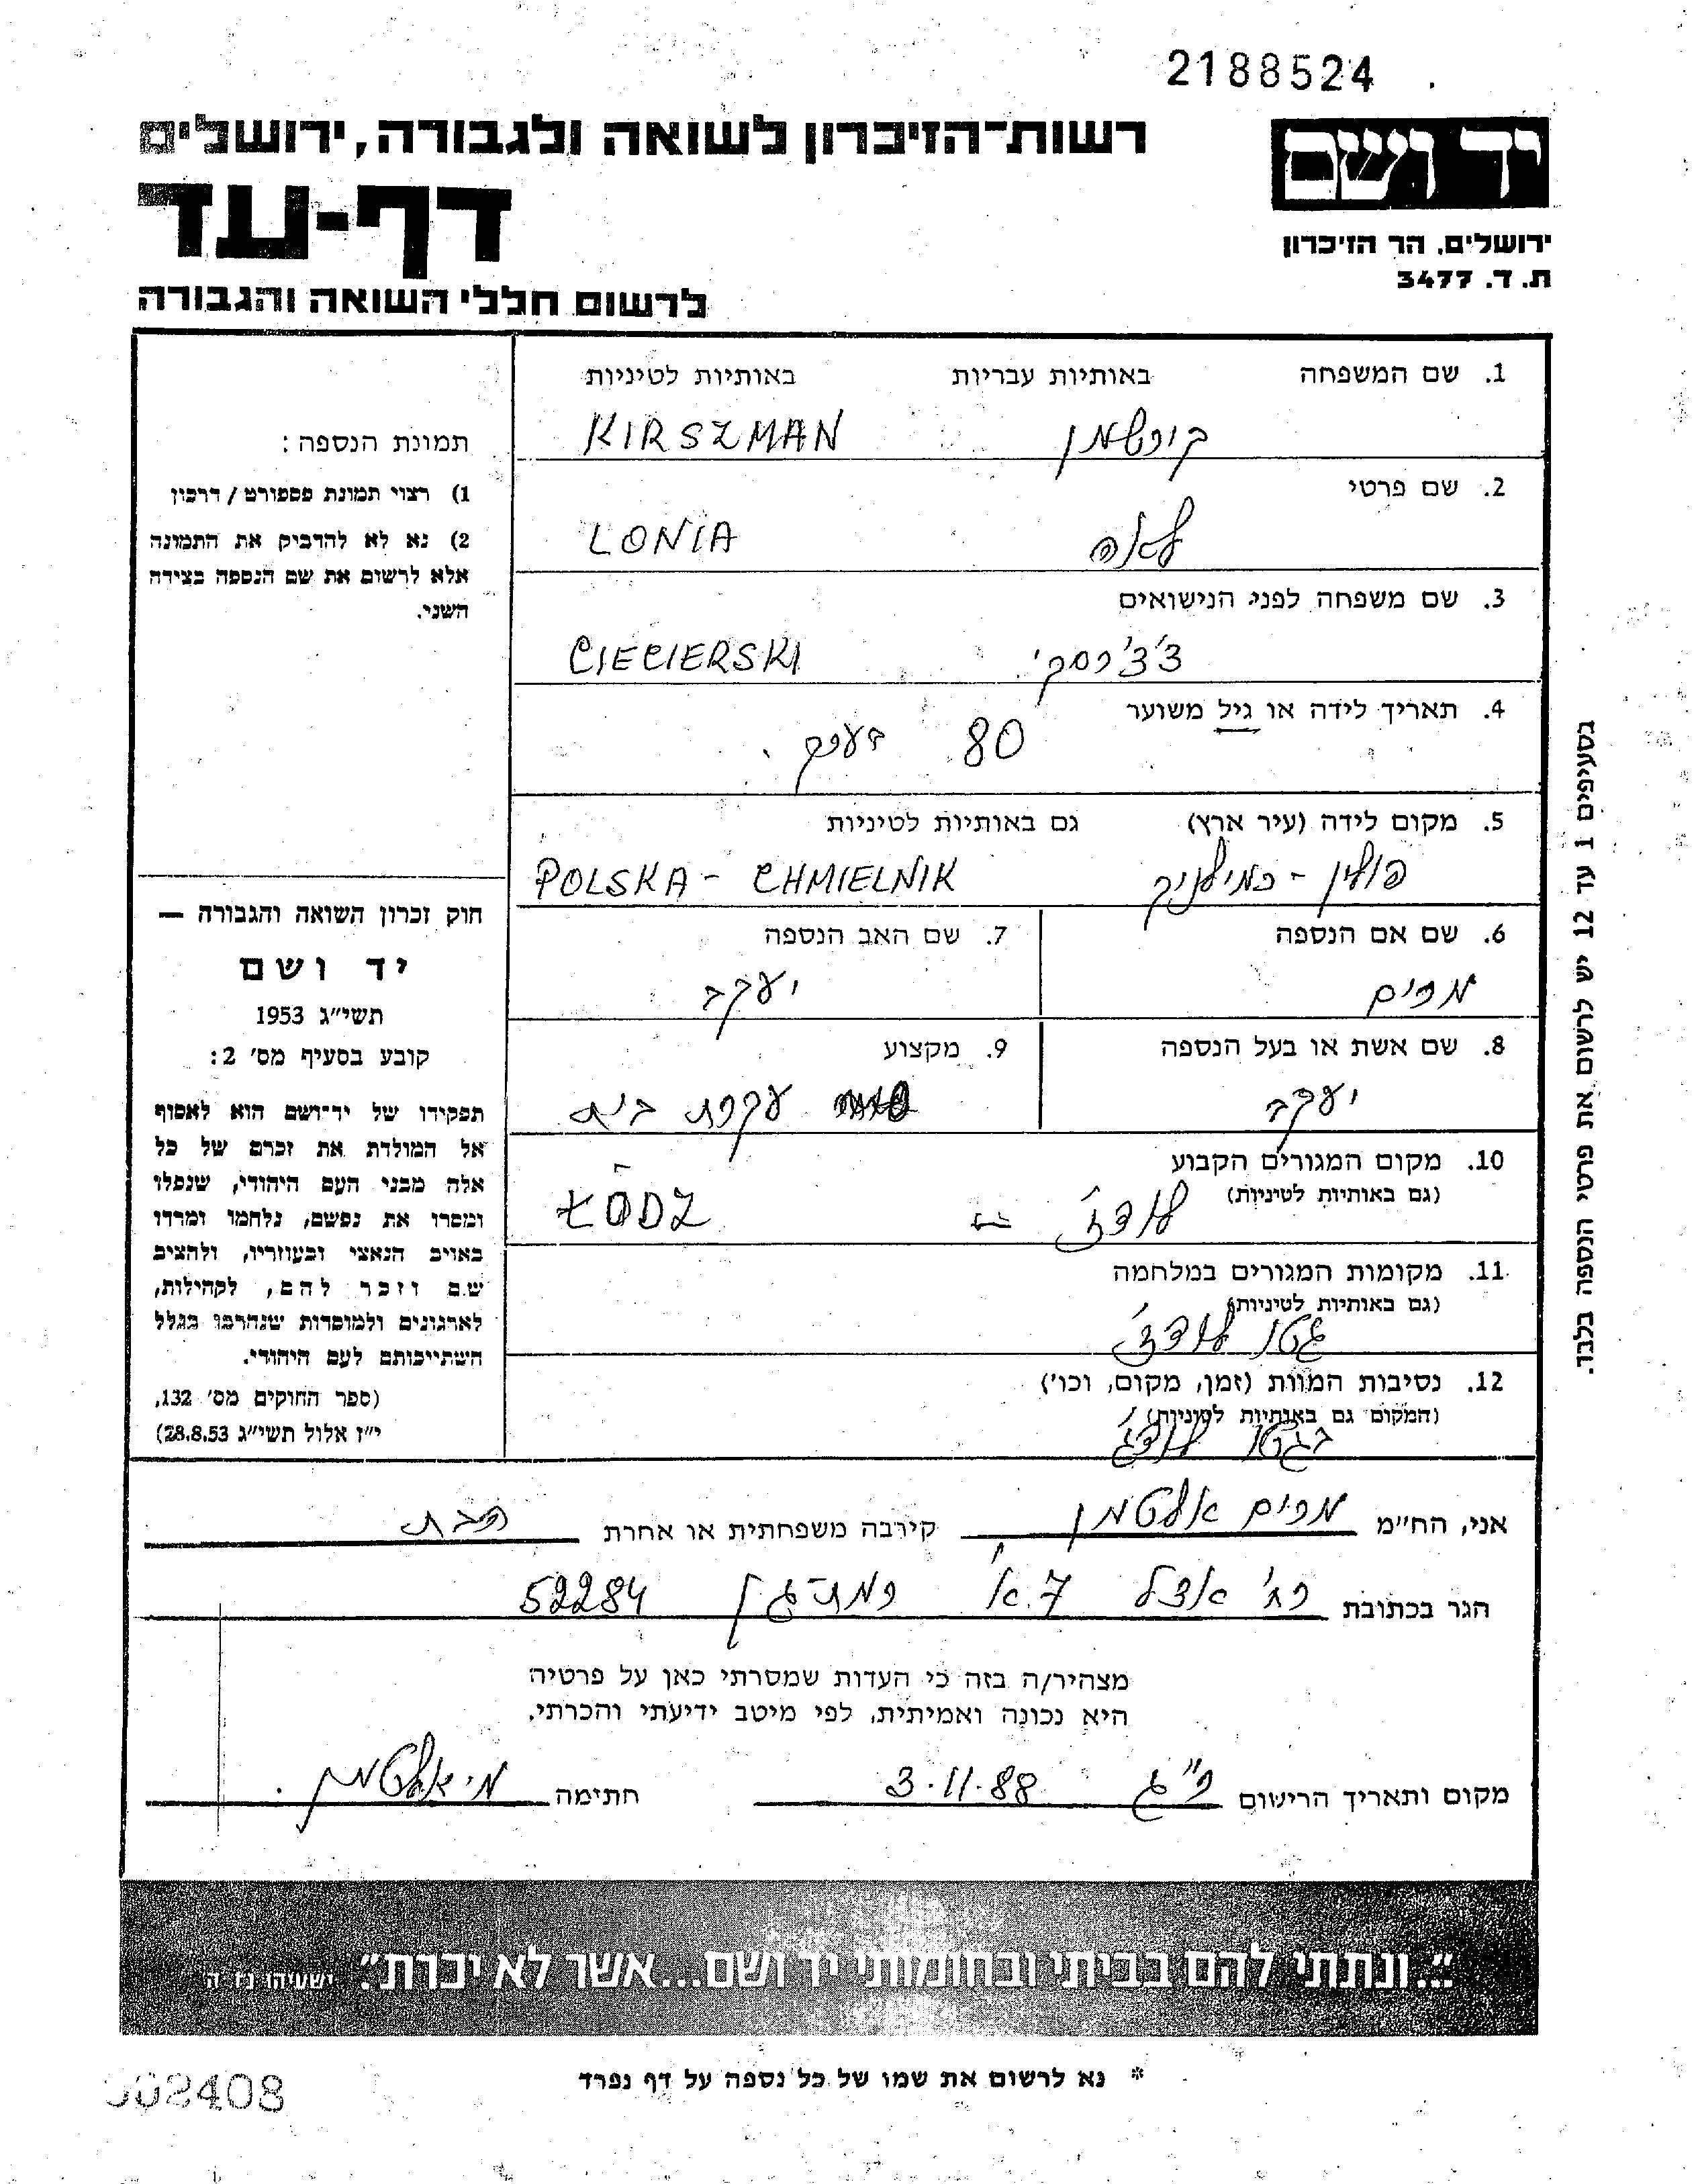 2188524
יד ושם
ירושלים, הר הזיכרון
ת.ד. 3477
רשות־הזיכרון לשואה ולגבורה, ירושלים
דף-עד
לרשום חללי השואה והגבורה
1. שם המשפחה באותיות עבריות באותיות לטיניות
קירשמן KIRSZMAN
2. שם פרטי
לאה LONIA
3. שם משפחה לפני הנישואים
צ'צ'רסקי CIECIERSKI
4. תאריך לידה או גיל משוער
80 בערך.
5. מקום לידה (עיר ארץ) גם באותיות לטיניות
פולין - כמילניק POLSKA - CHMIELNIK
6. שם אם הנספה
מרים
7. שם האב הנספה
יעקב
8. שם אשת או בעל הנספה
יעקב
9. מקצוע
עקרת בית
10. מקום המגורים הקבוע
(גם באותיות לטיניות)
לודז' ŁÓDZ
11. מקומות המגורים במלחמה
(גם באותיות לטיניות)
גטו לודז'
12. נסיבות המוות (זמן, מקום, וכו')
(המקום גם באותיות לטיניות)
בגטו לודז'
תמונת הנספה:
1) רצוי תמונת פספורט/דרכון
2) נא לא להדביק את התמונה
אלא לרשום את שם הנספה בצידה
השני.
חוק זכרון השואה והגבורה —
יד ושם
תשי"ג 1953
קובע בסעיף מס' 2:
תפקידו של יד־ושם הוא לאסוף
אל המולדת את זכרם של כל
אלה מבני העם היהודי, שנפלו
ומסרו את נפשם, נלחמו ומרדו
באויב הנאצי ובעוזריו, ולהציב
שם וזכר להם, לקהילות,
לארגונים ולמוסדות שנחרבו בגלל
השתייכותם לעם היהודי.
(ספר החוקים מס' 132,
י"ז אלול תשי"ג 28.8.53)
בסעיפים 1 עד 12 יש לרשום את פרטי הנספה בלבד.
אני, הח"מ מרים אלטמן קירבה משפחתית או אחרת הבת
הגר בכתובת רח' אצל 7.א' רמת-גן 52284
מצהיר/ה בזה כי העדות שמסרתי כאן על פרטיה
היא נכונה ואמיתית, לפי מיטב ידיעתי והכרתי.
מקום ותאריך הרישום ר"ג 3.11.88 חתימה מ. אלטמן
"..ונתתי להם בביתי ובחומותי יד ושם...אשר לא יכרת". ישעיהו נו ה
* נא לרשום את שמו של כל נספה על דף נפרד